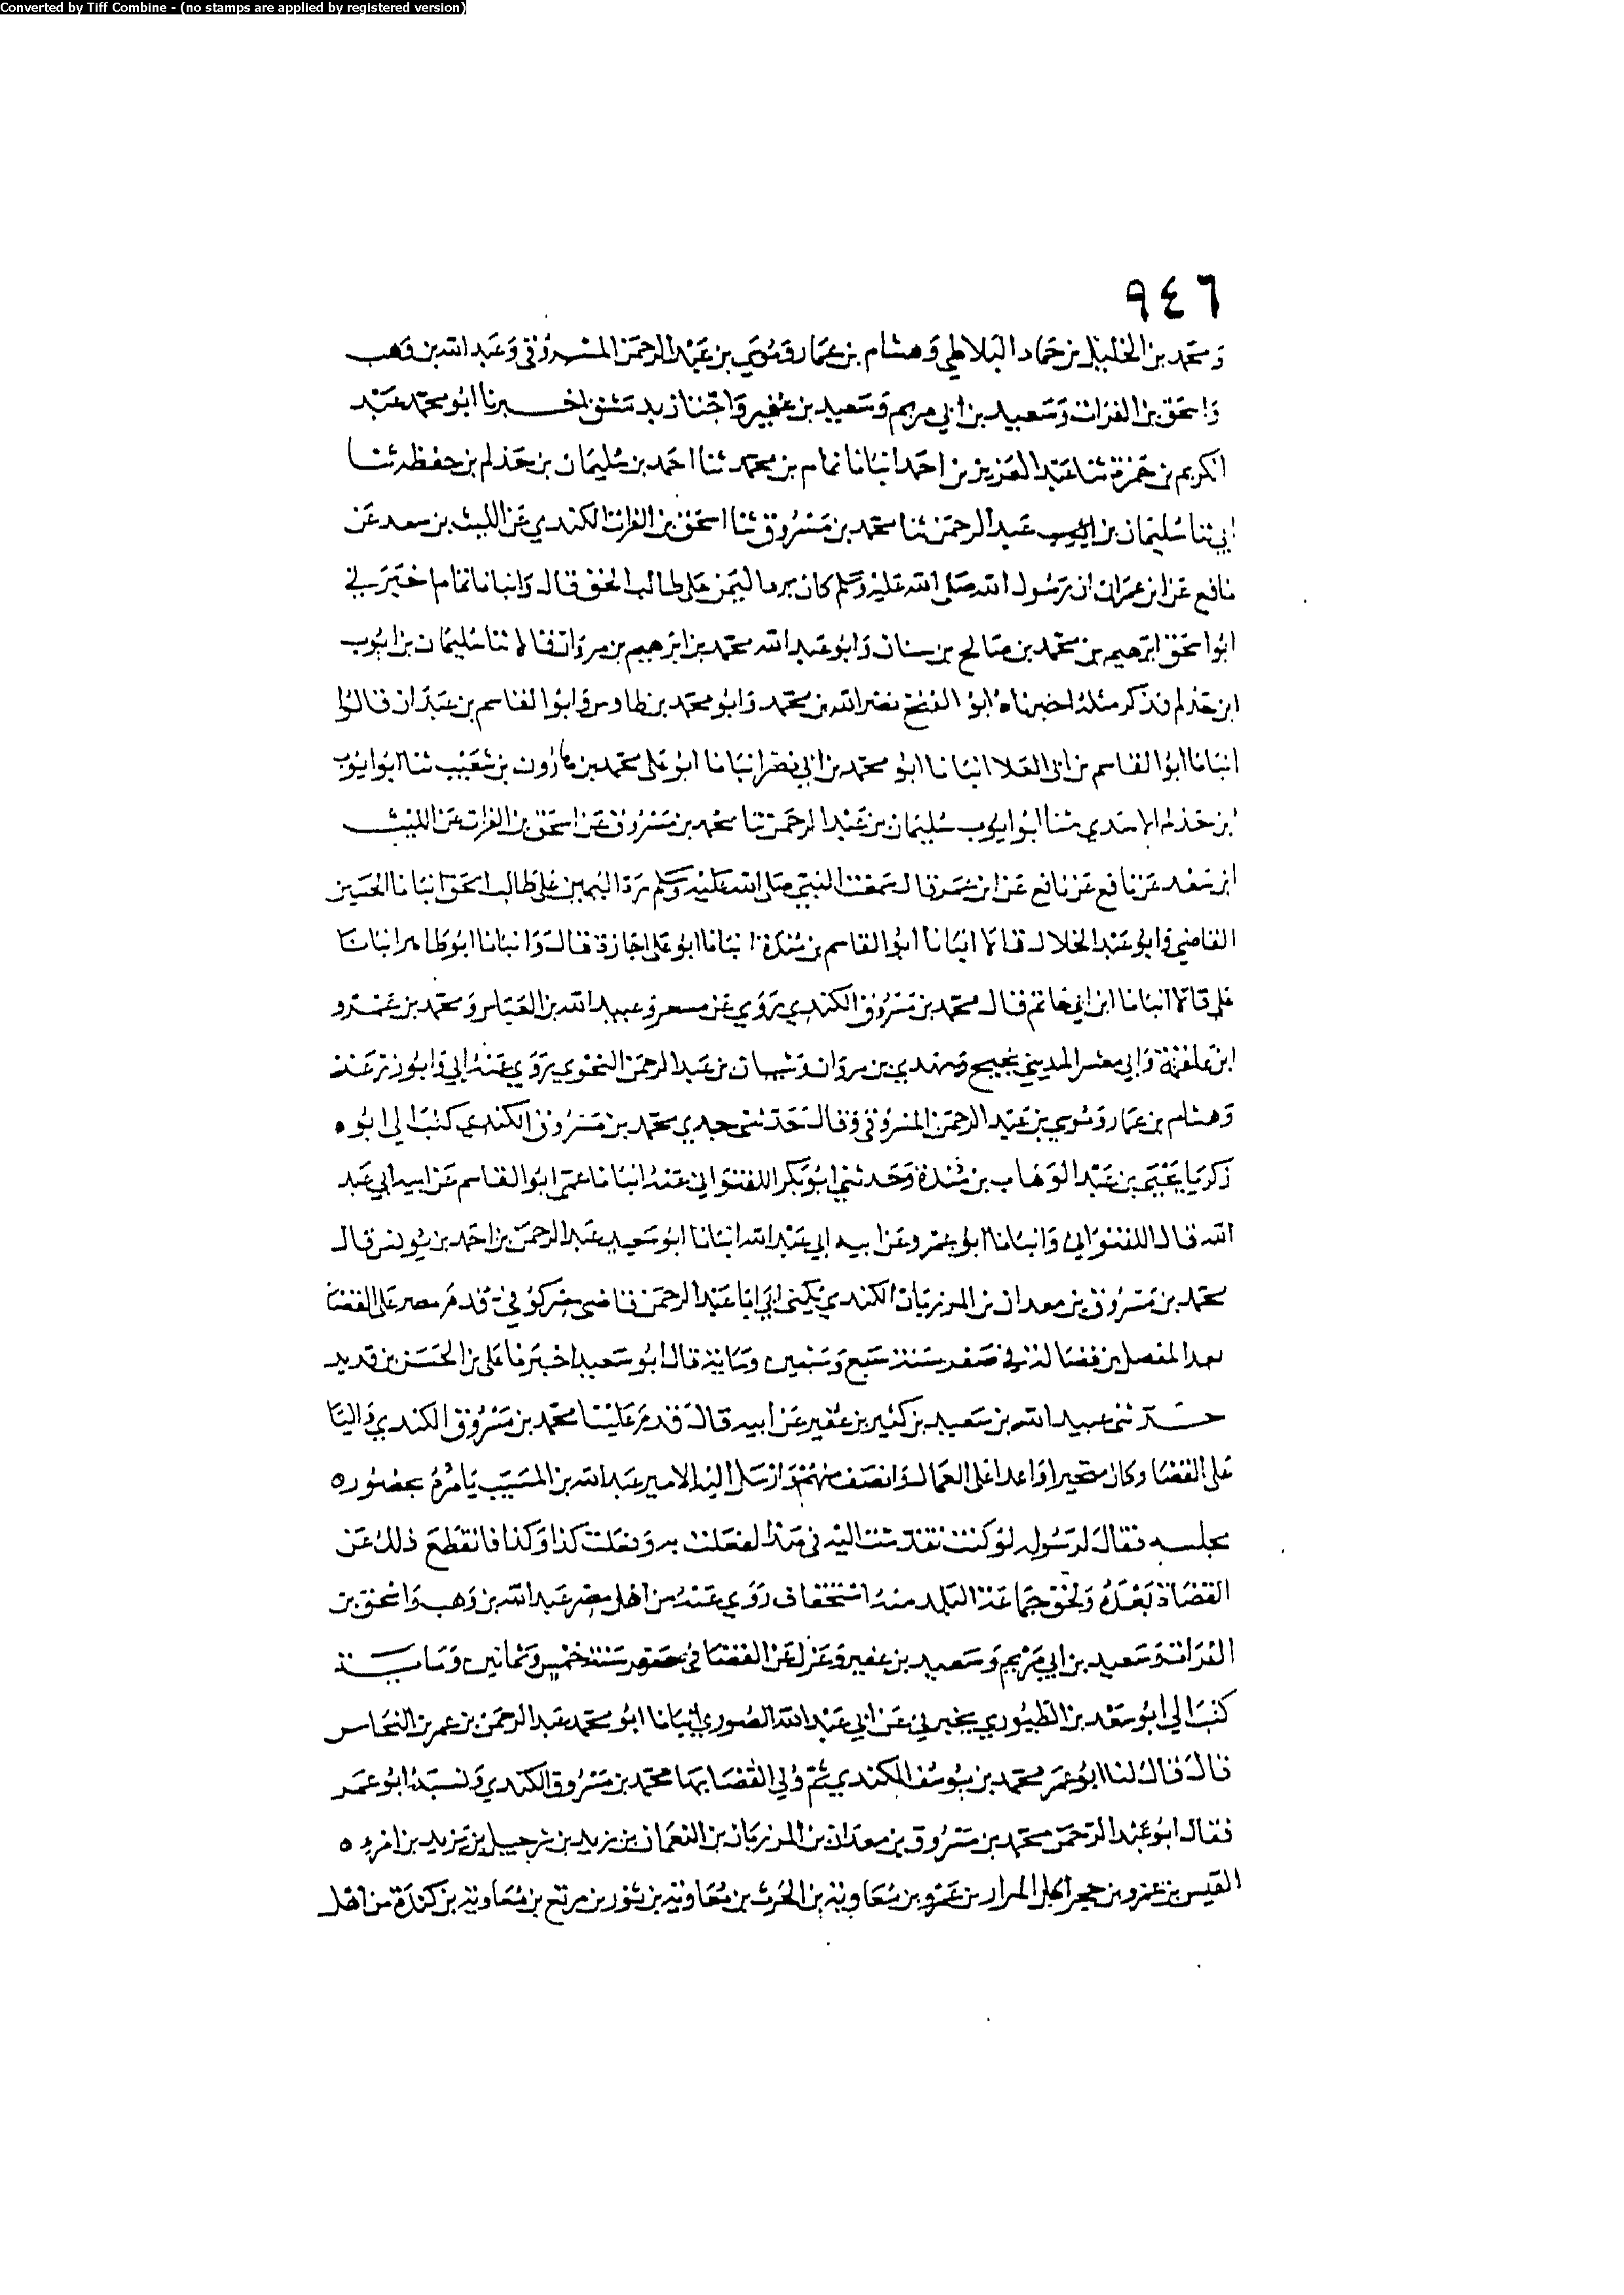 Converted by Tiff Combine - (no stamps are applied by registered version)
٩٤٦
ومحمد بن الخليل بن حماد البلاطي وهشام بن عمار وموسى بن عبد الرحمن المسروقي وعبد الله بن وهب
واسحق بن الفرات وسعيد بن ابي مريم وسعيد بن عفير واجتاز بدمشق اخبرنا ابو محمد عبد
الكريم بن حمزة ثنا عبد العزيز بن احمد انبانا تمام بن محمد ثنا احمد بن سليمان بن حذلم بن حفظه ثنا
ابي ثنا سليمان بن عبد الرحمن ثنا محمد بن مسروق ثنا اسحق بن الفرات الكندي عن الليث بن سعد عن
نافع عن ابن عمران ان رسول الله صلى الله عليه وسلم كان يرد اليمين على طالب الحق قال وانبانا تمام اخبرني
ابو اسحق ابرهيم بن محمد بن صالح بن سنان وابو عبد الله محمد بن ابرهيم بن مروان قالا ثنا سليمان بن ايوب
ابن حذلم فذكر مثله اخبرناه ابو الفتح نصر الله بن محمد وابو محمد بن طاوس وابو القاسم بن عبدان قالوا
انبانا ابو القاسم بن ابي العلا انبانا ابو محمد بن ابي نصر انبانا ابو علي محمد بن هارون بن شعيب ثنا ابو ايوب
ابن حذلم الاسدي ثنا ابو ايوب سليمان بن عبد الرحمن ثنا محمد بن مسروق عن اسحق بن الفرات عن الليث
ابن سعد عن نافع عن نافع عن ابن عمر قال سمعت النبي صلى الله عليه وسلم يرد اليمين على طالب الحق انبانا الحسين
القاضي وابو عبد الخلال قالا انبانا ابو القاسم بن مندة انبانا ابو علي اجازة قال وانبانا ابو طاهر انبانا
علي قالا انبانا ابن ابي حاتم قال محمد بن مسروق الكندي روى عن مسعر وعبيد الله بن العباس ومحمد بن عمرو
ابن علقمة وابي معشر المديني نجيح ومهدي بن مروان وشيبان بن عبد الرحمن النحوي يروي عنه ابي وابو زرعة عنه
وهشام بن عمار وموسى بن عبد الرحمن المسروقي وقال حدثني جدي محمد بن مسروق الكندي كتب الي ابو ه
زكريا يحيى بن عبد الوهاب بن مندة وحدثني ابو بكر اللفتواني عنه انبانا عمي ابو القاسم عن ابيه ابي عبد
الله قال اللفتواني وانبانا ابو عمرو عن ابيه ابي عبد الله انبانا ابو سعيد عبد الرحمن بن احمد بن يونس قال
محمد بن مسروق بن معدان بن المرزبان الكندي يكنى ابا عبد الرحمن قاضي مصر كوفي قدم مصر على القضا
بعد المفضل بن فضالة في صفر سنة سبع وسبعين ومايه قال ابو سعيد اخبرنا علي بن الحسن بن قديد
حدثني عبيد الله بن سعيد بن كثير بن عفير عن ابيه قال قدم علينا محمد بن مسروق الكندي واليا
على القضا وكان متجبرا واعدا على العمال وانصف منهم وارسل اليه الامير عبد الله بن المسيب يامره بحضوره
مجلسه فقال لرسوله لو كنت تقدمت اليه في هذا لفعلت به وفعلت كذا وكذا فانقطع ذلك عن
القضاة بعده ولحق جماعة البلد منه استخفاف روى عنه من اهل مصر عبد الله بن وهب واسحق بن
الفرات وسعيد بن ابي مريم وسعيد بن عفير وعزل عن القضا في صفر سنة خمس وثمانين ومايه
كتب الي ابو سعد بن الطيوري يخبرني عن ابي عبد الله الصوري انبانا ابو محمد عبد الرحمن بن عمر بن النحاس
قال قال لنا ابو عمر محمد بن يوسف الكندي ثم ولي القضا بها محمد بن مسروق الكندي ونسبه ابو عمر
فقال ابو عبد الرحمن محمد بن مسروق بن معدان بن المرزبان بن النعمان بن زيد بن شرحبيل بن يزيد بن امرء ه
القيس بن عمرو بن حجر اكل المرار بن عمرو بن معاوية بن الحرث بن معاوية بن ثور بن مرتع بن معاوية بن كندة من اهل